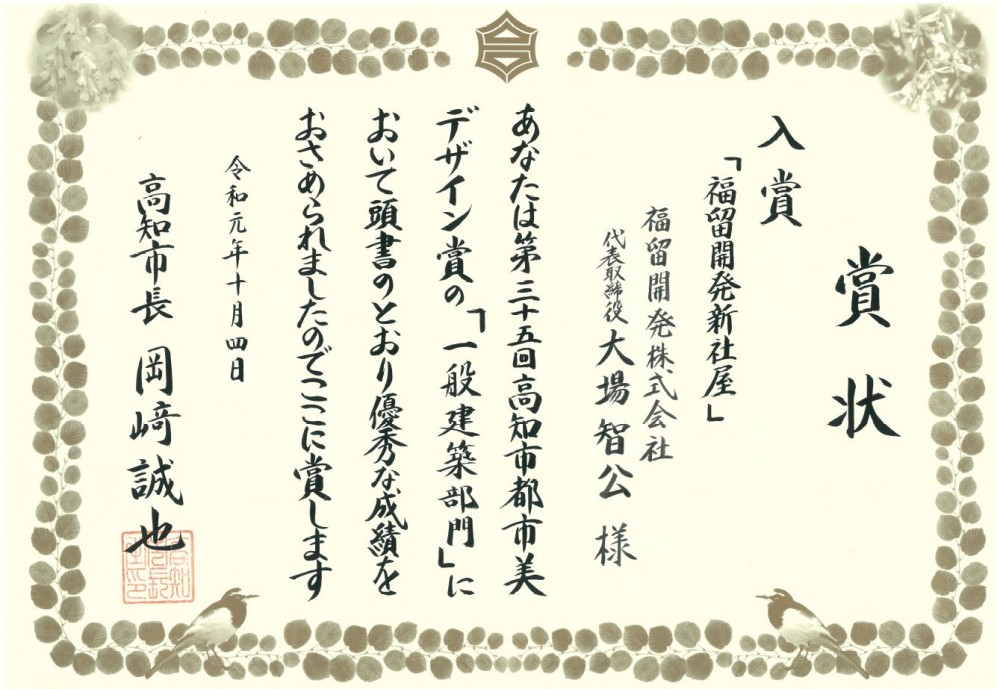 賞状
入賞
「福留開発新社屋」
福留開発株式会社
代表取締役 大場智公 様
あなたは第三十五回高知市都市美
デザイン賞の「一般建築部門」に
おいて頭書のとおり優秀な成績を
おさめられましたのでここに賞します
令和元年十月四日
高知市長 岡﨑誠也